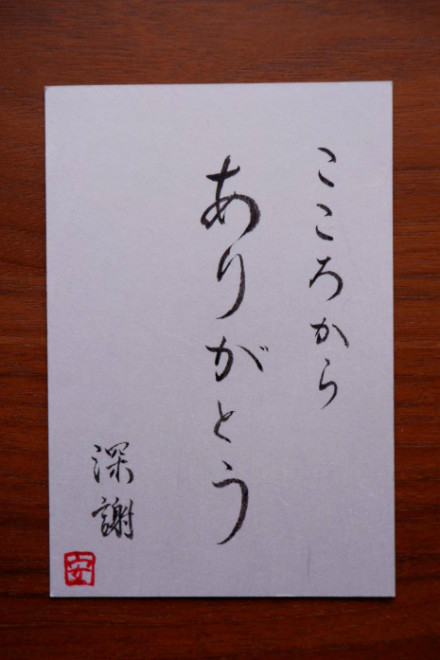 こころから
ありがとう
深謝
安